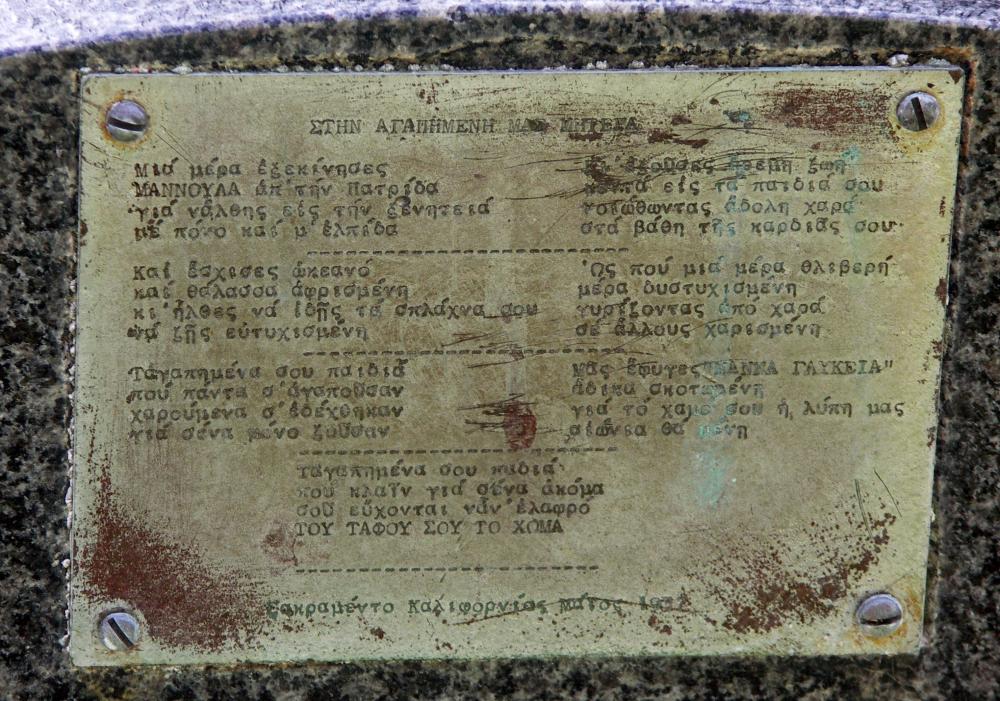 ΣΤΗΝ ΑΓΑΠΗΜΕΝΗ ΜΑΣ ΜΗΤΕΡΑ
Μιά μέρα ἐξεκίνησες
ΜΑΝΝΟΥΛΑ ἀπ'τήν Πατρίδα
γιά νἄλθης είς τήν ξενητειά
μέ πόνο καί μ'ἐλπίδα
Καί ἔσχισες ὠκεανό
καί θάλασσα ἀφρισμένη
κι'ἦλθες νά ἰδῆς τά σπλάχνα σου
νά ζῆς εὐτυχισμένη
Τἀγαπημένα σου παιδιά
πού πάντα σ'ἀγαποῦσαν
χαρούμενα σ'ἐδέχθηκαν
γιά σένα μόνο ζοῦσαν
ἐζοῦσες ἤρεμη ζωή
κοντά είς τά παιδιά σου
νοιώθωντας ἄδολη χαρά
στά βάθη τῆς καρδιᾶς σου
Ὥς πού μιά μέρα θλιβερή
μέρα δυστυχισμένη
γυρίζοντας ἀπό χαρά
σέ ἄλλους χαρισμένη
μᾶς ἔφυγες "ΜΑΝΝΑ ΓΛΥΚΕΙΑ"
ἄδικα σκοτωμένη
γιά τό χαμό σου ἡ λύπη μας
αἰώνια θά μένη
Τἀγαπημένα σου παιδιά
πού κλαῖν γιά σένα ἀκόμα
σοῦ εὔχονται νἆν'ἐλαφρό
ΤΟΥ ΤΑΦΟΥ ΣΟΥ ΤΟ ΧΩΜΑ
Σακραμέντο Καλιφόρνιας Μάϊος